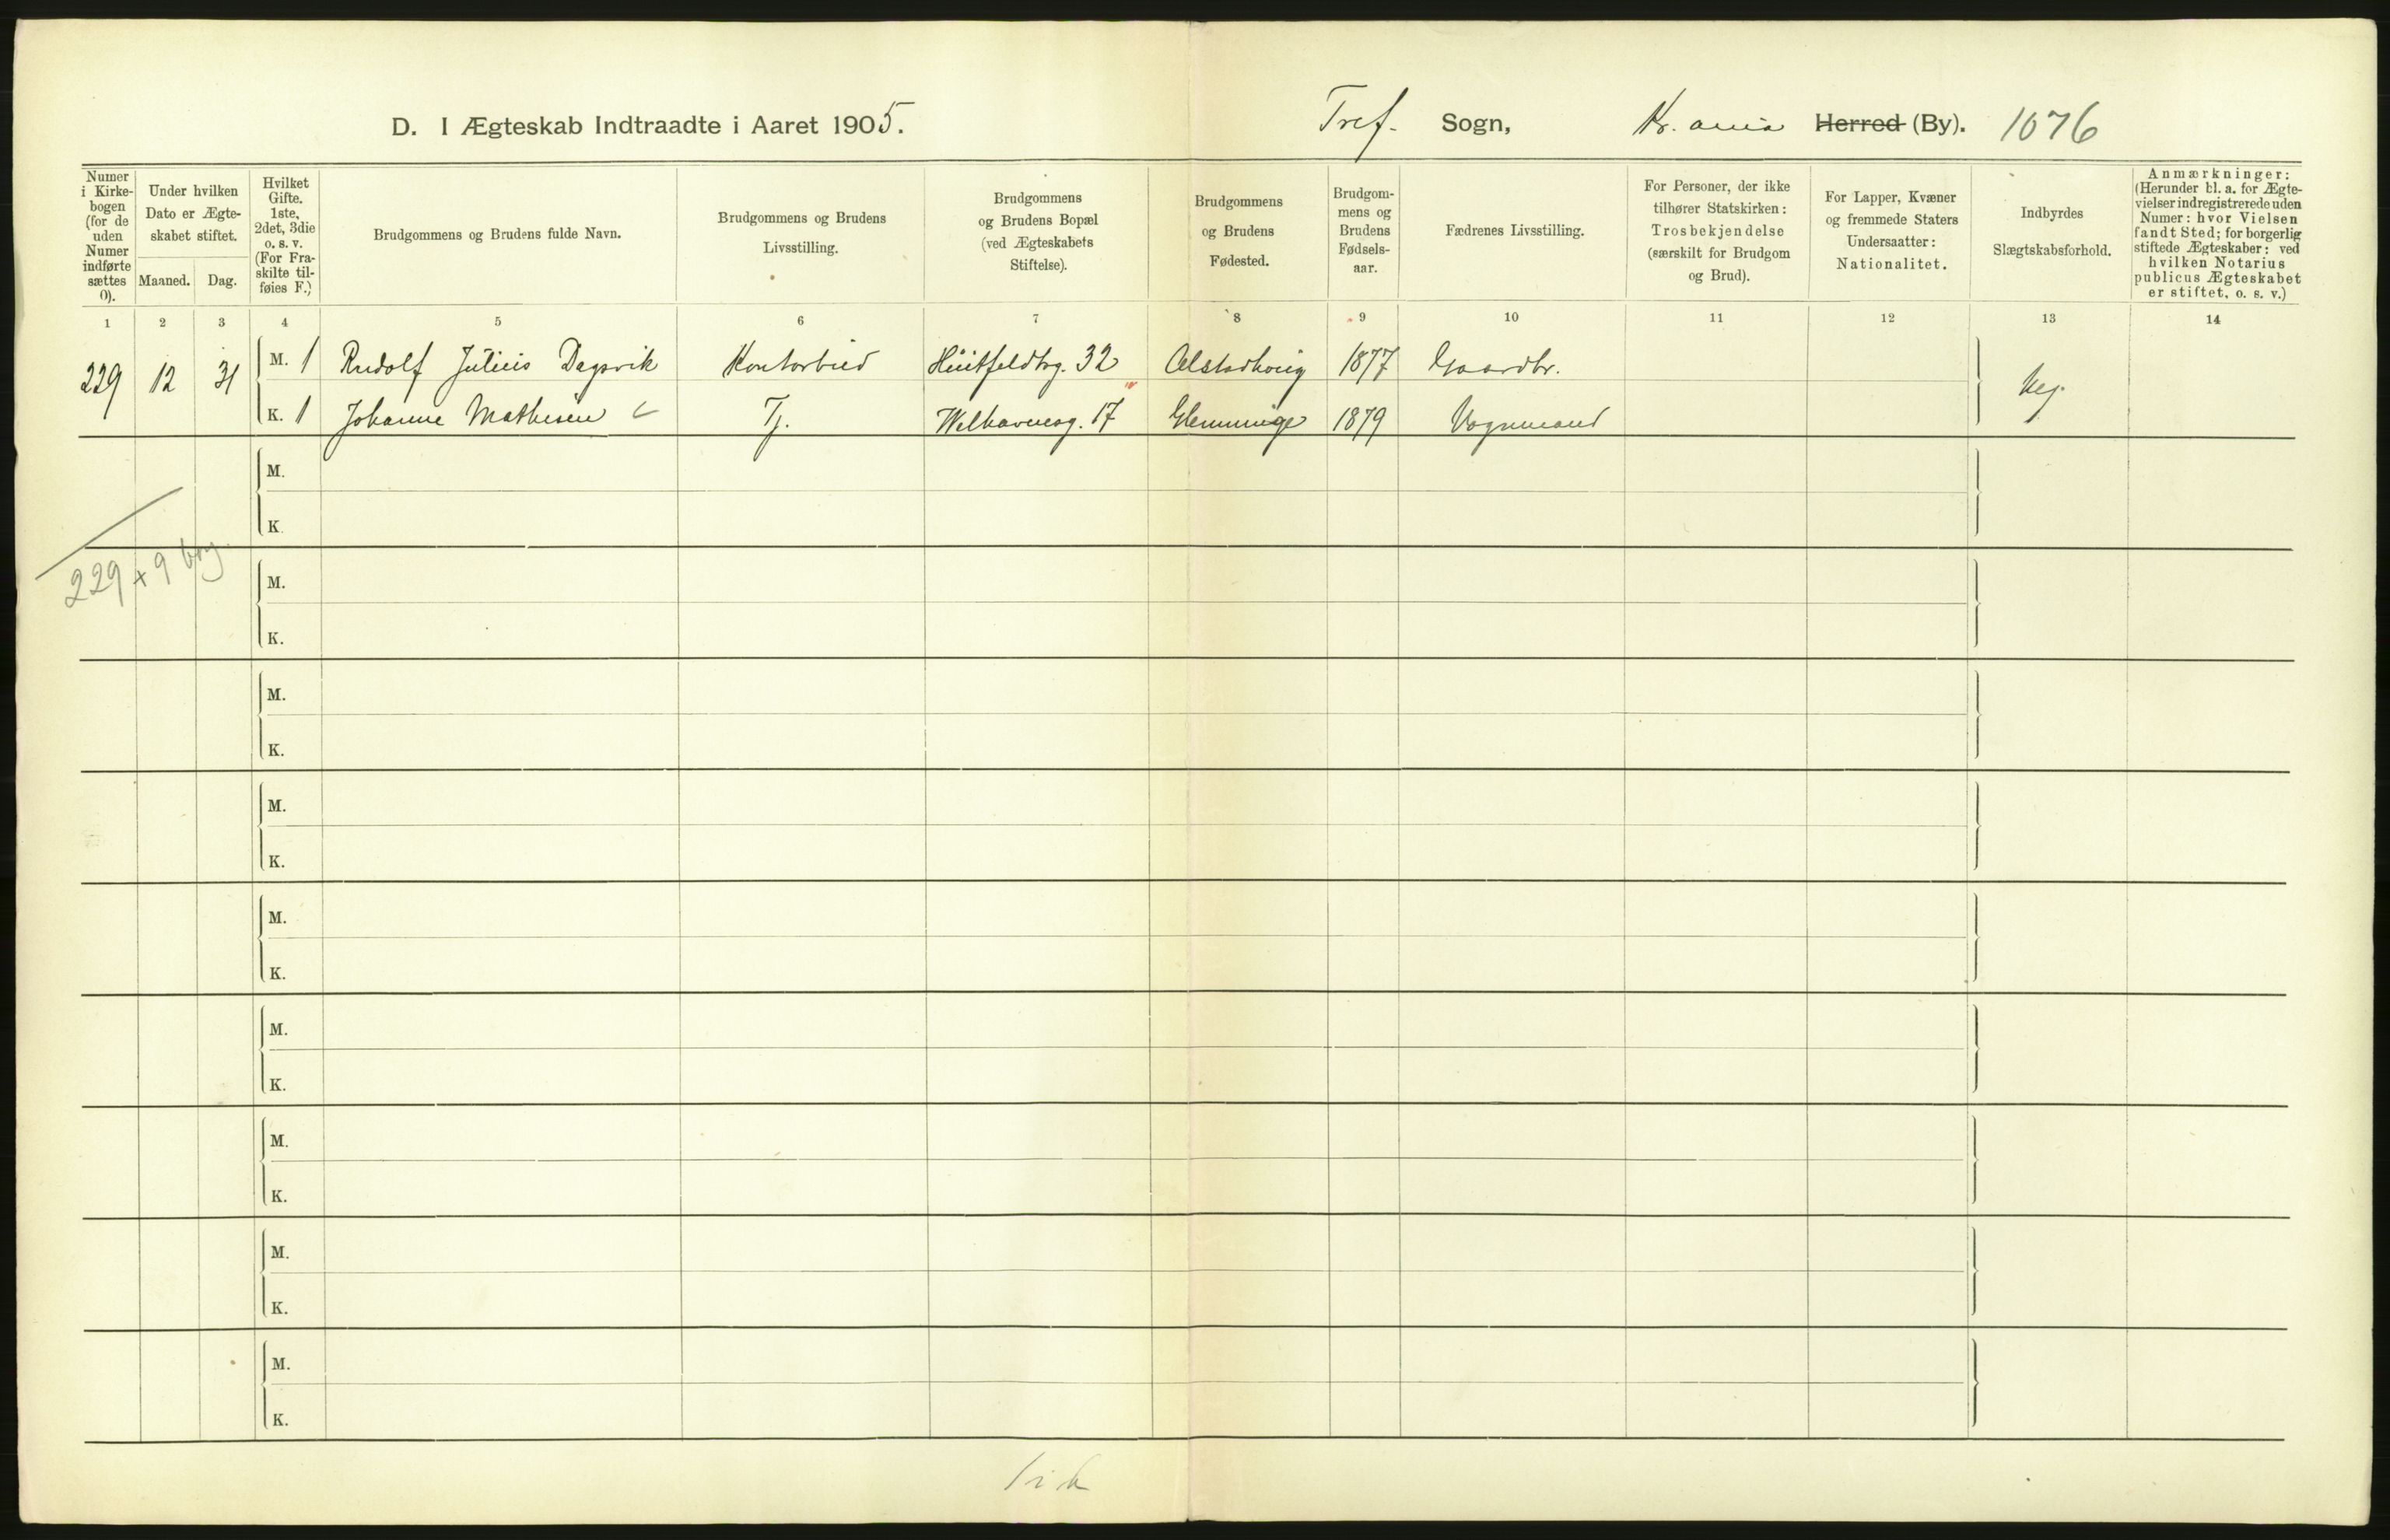 D. I Ægteskab Indtraadte i Aaret 1905.
Tref. Sogn, Kr.ania Herred (By). 1076
Numer i Kirke-bogen (for de uden Numer indførte sættes 0).
Under hvilken Dato er Ægte-skabet stiftet.
Maaned. Dag.
Hvilket Gifte. 1ste, 2det, 3die o. s. v. (For Fra-skilte til-føies F.)
Brudgommens og Brudens fulde Navn.
Brudgommens og Brudens Livsstilling.
Brudgommens og Brudens Bopæl (ved Ægteskabets Stiftelse).
Brudgommens og Brudens Fødested.
Brudgom-mens og Brudens Fødsels-aar.
Fædrenes Livsstilling.
For Personer, der ikke tilhører Statskirken: Trosbekjendelse (særskilt for Brudgom og Brud).
For Lapper, Kvæner og fremmede Staters Undersaatter: Nationalitet.
Indbyrdes Slægtskabsforhold.
Anmærkninger: (Herunder bl. a. for Ægte-vielser indregistrerede uden Numer: hvor Vielsen fandt Sted; for borgerlig stiftede Ægteskaber: ved hvilken Notarius publicus Ægteskabet er stiftet, o. s. v.)
1 2 3 4 5 6 7 8 9 10 11 12 13 14
229 12 31 M. 1 Rudolf Julius Dagsvik Kontorbud Huitfeldtsg. 32 Alstadhoug 1877 Gaardbr. Nej.
K. 1 Johanne Mathisen Tj. Welhavensg. 17 Glemminge 1879 Vognmand
M.
K.
229 + 9 brg.
M.
K.
M.
K.
M.
K.
M.
K.
M.
K.
M.
K.
M.
K.
M.
K.